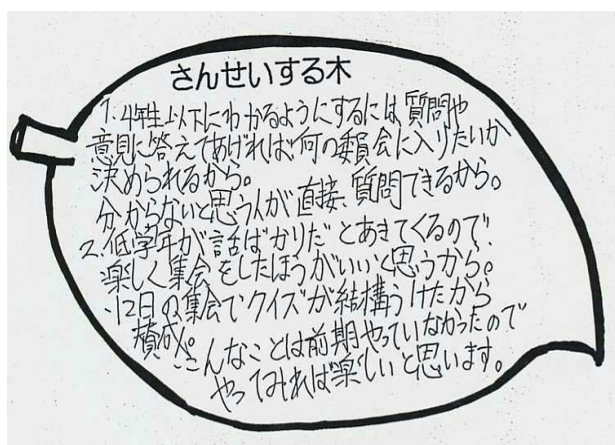 さんせいする木
1.4年生以下にわかるようにするには質問や
意見に答えてあげれば何の委員会に入りたいか
決められるから。
分からないと思う人が直接、質問できるから。
2.低学年が話ばかりだとあきてくるので、
楽しく集会をしたほうがいいと思うから。
・12日の集会でクイズが結構うけたから
賛成。
・こんなことは前期やっていなかったので
やってみれば楽しいと思います。